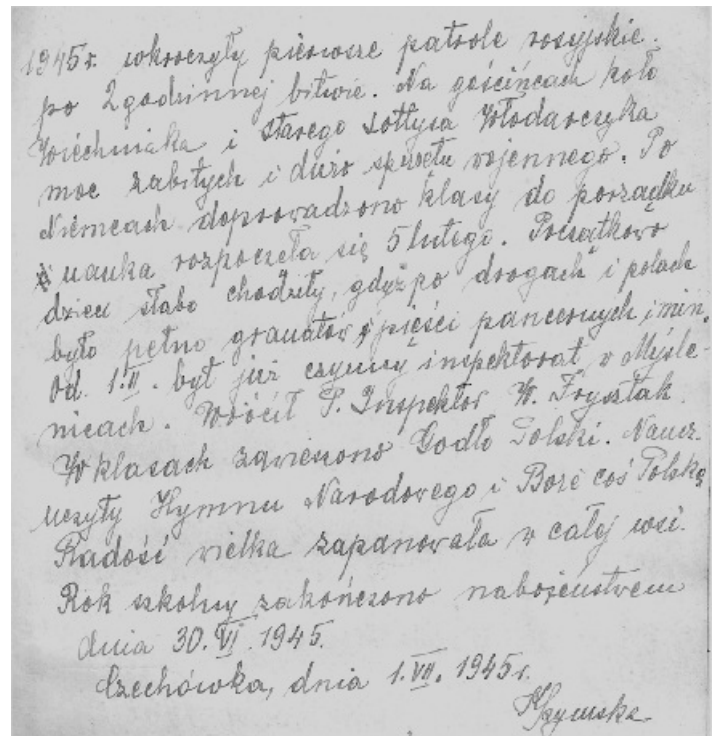 1945r. wkroczyły pierwsze patrole rosyjskie.
po 2 godzinnej bitwie. Na gościńcach koło
Wiechniaka i starego sołtysa Włodarczyka
moc zabitych i dużo sprzętu wojennego. Po
Niemcach doprowadzono klasy do porządku
i nauka rozpoczęła się 5 lutego. Początkowo
dzieci słabo chodziły, gdyż po drogach i polach
było pełno granatów, pięści pancernych i min.
Od 1.II. był już czynny inspektorat w Myśle-
nicach. Wrócił P. Inspektor W. Frysztak.
W klasach zawieszono Godło Polski. Naucz.
uczyły Hymnu Narodowego i Boże coś Polskę
Radość wielka zapanowała w całej wsi.
Rok szkolny zakończono nabożeństwem
dnia 30.VI.1945.
Czechówka, dnia 1.VII.1945r.